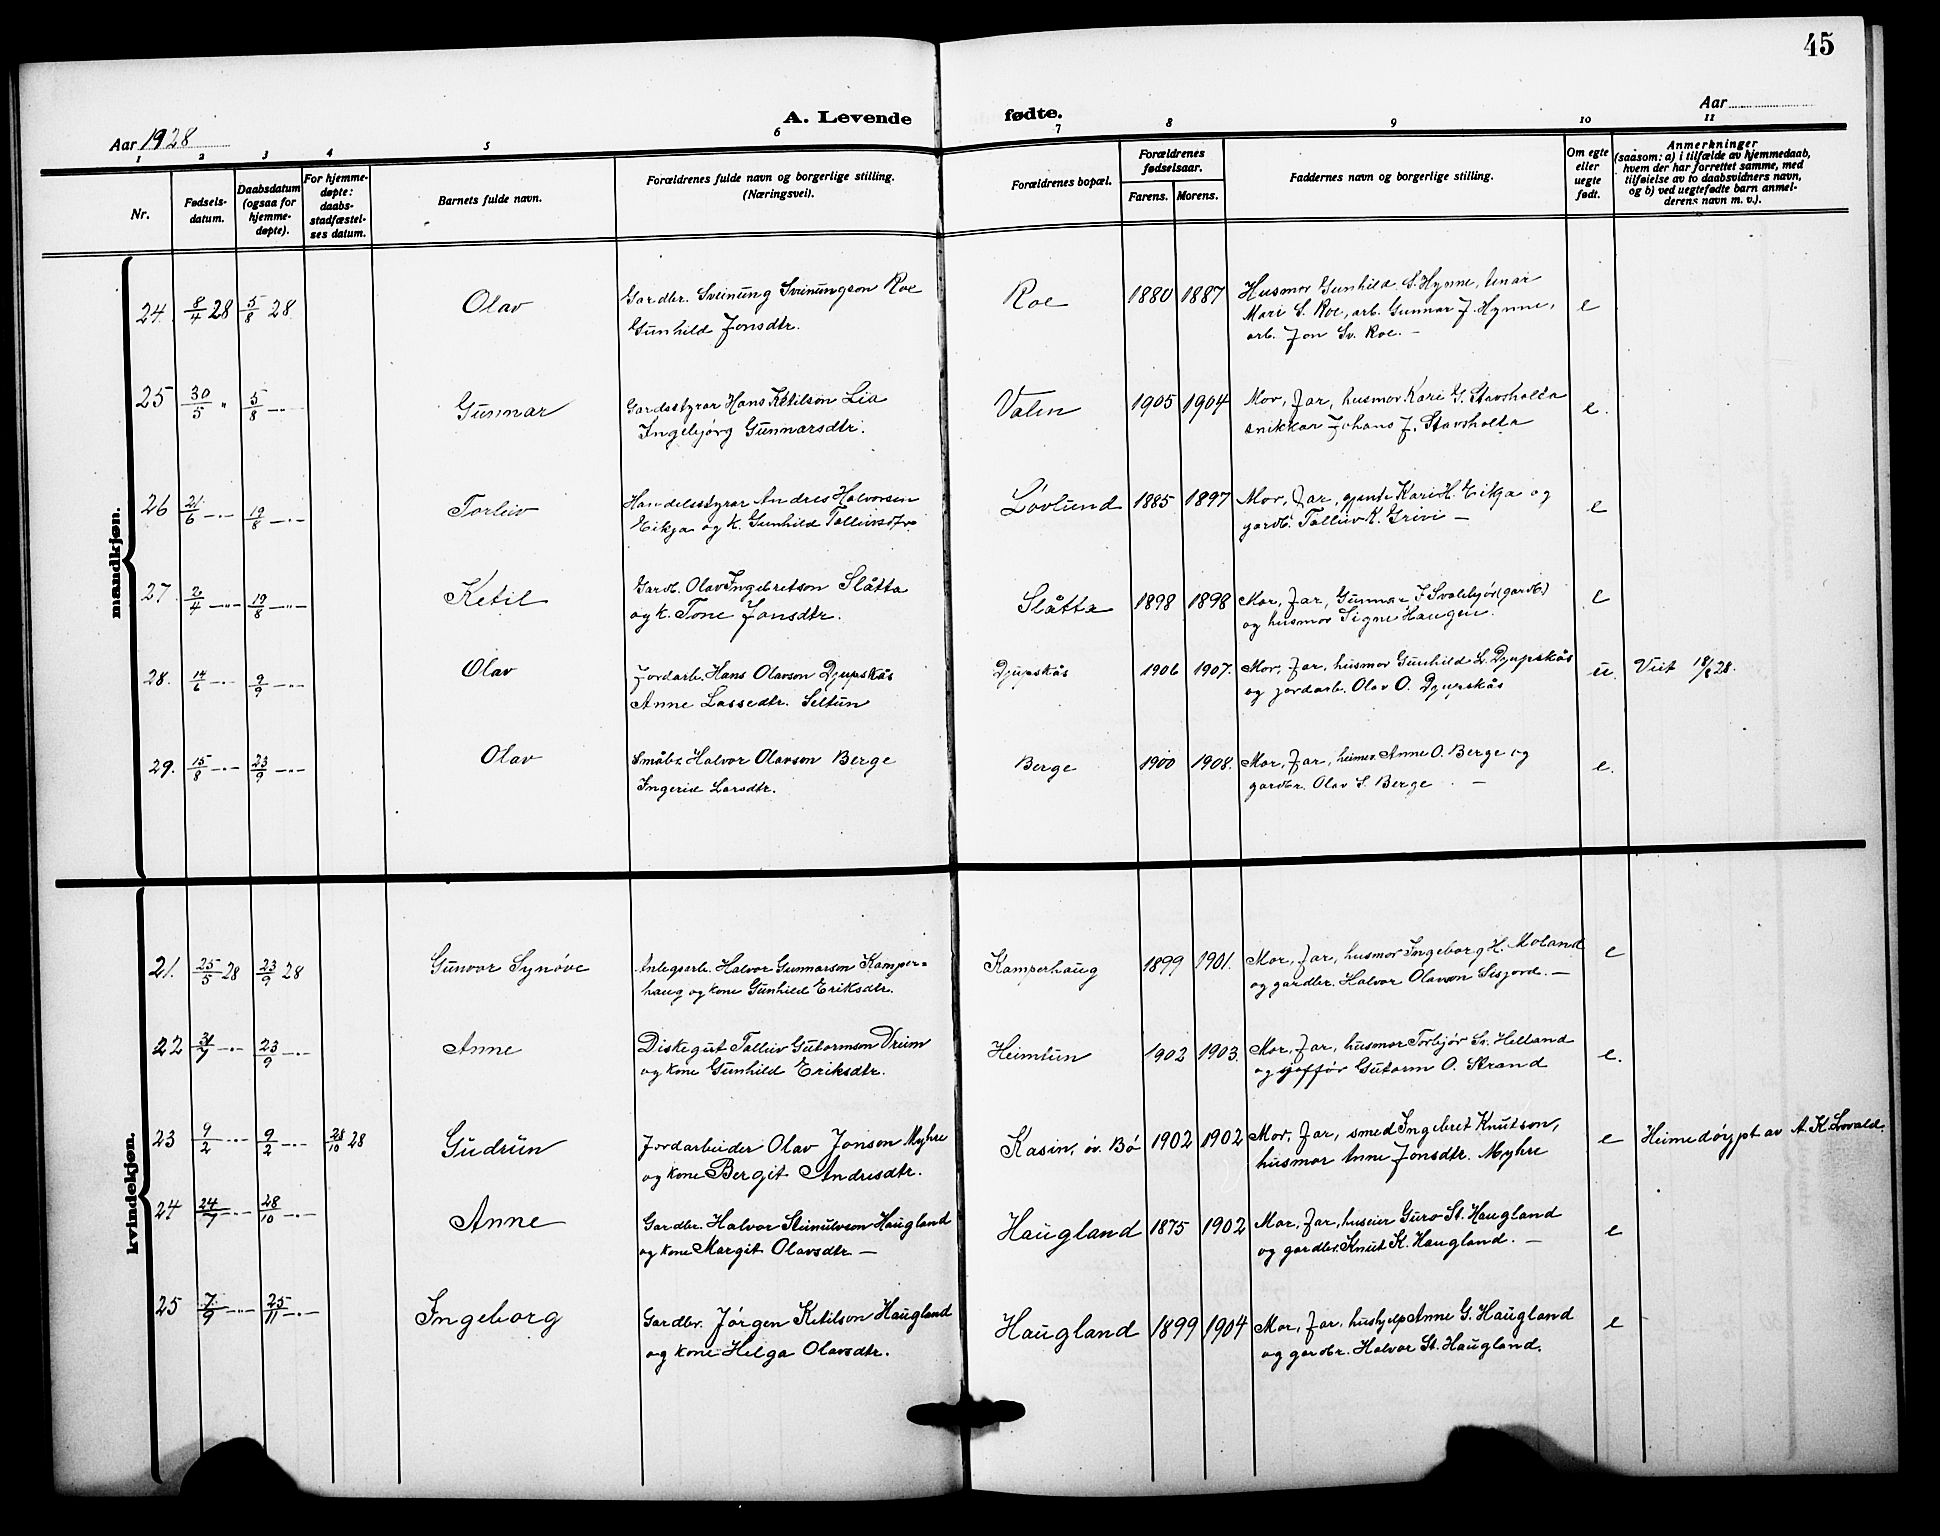 45
Aar 1928
A. Levende fødte.
Aar
1 2 3 4 5 6 7 8 9 10 11
Nr.
Fødselsdatum.
Daabsdatum (ogsaa for hjemmedøpte).
For hjemmedøpte: daabsstadfæstelses datum.
Barnets fulde navn.
Forældrenes fulde navn og borgerlige stilling. (Næringsvei).
Forældrenes bopæl.
Forældrenes fødselsaar.
Farens. Morens.
Faddernes navn og borgerlige stilling.
Om egte eller uegte født.
Anmerkninger
(saasom: a) i tilfælde av hjemmedaab,
hvem der har forrettet samme, med
tilføielse av to daabsvidners navn,
og b) ved uegtefødte barn anmelderens navn m. v.).
mandkjøn.
24. 8/4 28 5/8 28. Olav Gardbr. Sveinung Sveinungson Roe Roe 1880 1887 Husmor Gunhild S. Hynne, tenar e
Gunhild Jonsdtr. Mari S. Roe, arb. Gunnar J. Hynne,
arb. Jon Sv. Roe. –
25 30/5 " 5/8 –"– Gunnar Gardsstyrar Hans Ketilson Lia Valen 1905 1904 Mor, Far, husmor Kari G. Stavsholta e.
Ingebjørg Gunnarsdtr. snikkar Johans J. Stavsholta
26 21/6 –"– 19/8 –"– Torleiv Handelsstyrar Andres Halvorsen Løvlund 1885 1897 Mor, Far, gjente Kari H. Eikja og e
Eikja og k. Gunhild Tolleivsdtr. gardb. Tolleiv K. Grivi –
27. 2/4 –"– 19/8 –"– Ketil Gardb. Olav Ingebretson Slåtta Slåtta 1898 1898 Mor, Far, Gunnar J. (gardb) e
og k. Tone Jonsdtr. og husmor Signe Haugen.
28. 14/6 –"– 9/9 –"– Olav Jordarb. Hans Olavson Djupskås Djupskås 1906 1907. Mor, Far, husmor Gunhild L. Djupskås u. Viet 18/8 28.
Anne Lassedtr. Seltun og jordarb. Olav O. Djupskås
29. 15/8 –"– 23/9 –"– Olav Småbr. Halvor Olavson Berge Berge 1900 1908. Mor, Far, heimev. Anne O. Berge og e.
Ingerid Larsdtr. gardbr. Olav S. Berge –
kvindekjøn.
21. 25/5 28 23/9 28 Gunvor Synøve Anlegsarb. Halvor Gunnarson Kamper= Kamperhaug 1899 1901. Mor, Far, husmor Ingeborg H. Moland e
haug og kone Gunhild Eriksdtr. og gardbr. Halvor Olavson Sisjord. –
22 31/7 –"– 23/9 –"– Anne Diskegut Tolleiv Gutormson Vreim Heimtun 1902 1903. Mor, Far, husmor Torbjør Sv. Helland e.
og kone Gunhild Eriksdtr. og sjoffør Gutorm O. Strand
23 9/2 –"– 9/2 –"– 28/10 28 Gudrun Jordarbeider Olav Jonson Myhre Kasin, øv. Bø 1902 1902 Mor, Far, smed Ingebret Knutson, e Heimedøypt av A. K. Lovald.
og kone Bergit Andresdtr. husmor Anne Jonsdtr. Myhre
24 24/7 –"– 28/10 –"– Anne Gardbr. Halvor Steinulvson Haugland Haugland 1875 1902 Mor, Far, huseier Guro St. Haugland e
og kone Margit Olavsdtr – og gardbr. Knut K. Haugland. –
25 7/9 –"– 25/11 –"– Ingeborg Gardbr. Jørgen Ketilson Haugland Haugland 1899 1904 Mor, Far, hushjelp Anne G. Haugland e
og kone Helga Olavsdtr. og gardbr. Halvor St. Haugland.